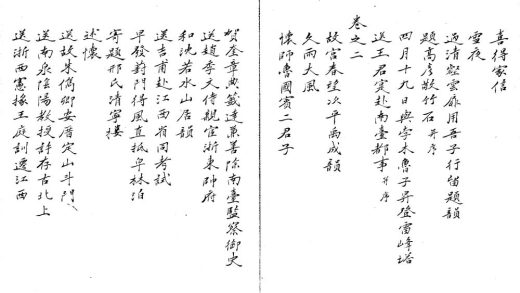 喜得家信
雪夜
過清溪雲扉用吾子行留題韻
題高彥敬竹石并序
四月十九日與孛术魯子昇登雷峰塔
卷之二
送王君定赴南臺都事并序
故宮春望次平禹成韻
久雨大風
懷師魯國賓二君子
賀奎章典籤達兼善除南臺監察御史
送趙季文侍親宦浙東帥府
和沈若水山居韻
送吉甫赴江西省同考試
早發葑門得風直抵皁林泊
寄題邢氏清寧樓
述懷
送故朱僑卿安厝定山斗門
送南泉陰陽教授許存古北上
送浙西憲掾王庭訓遷江西